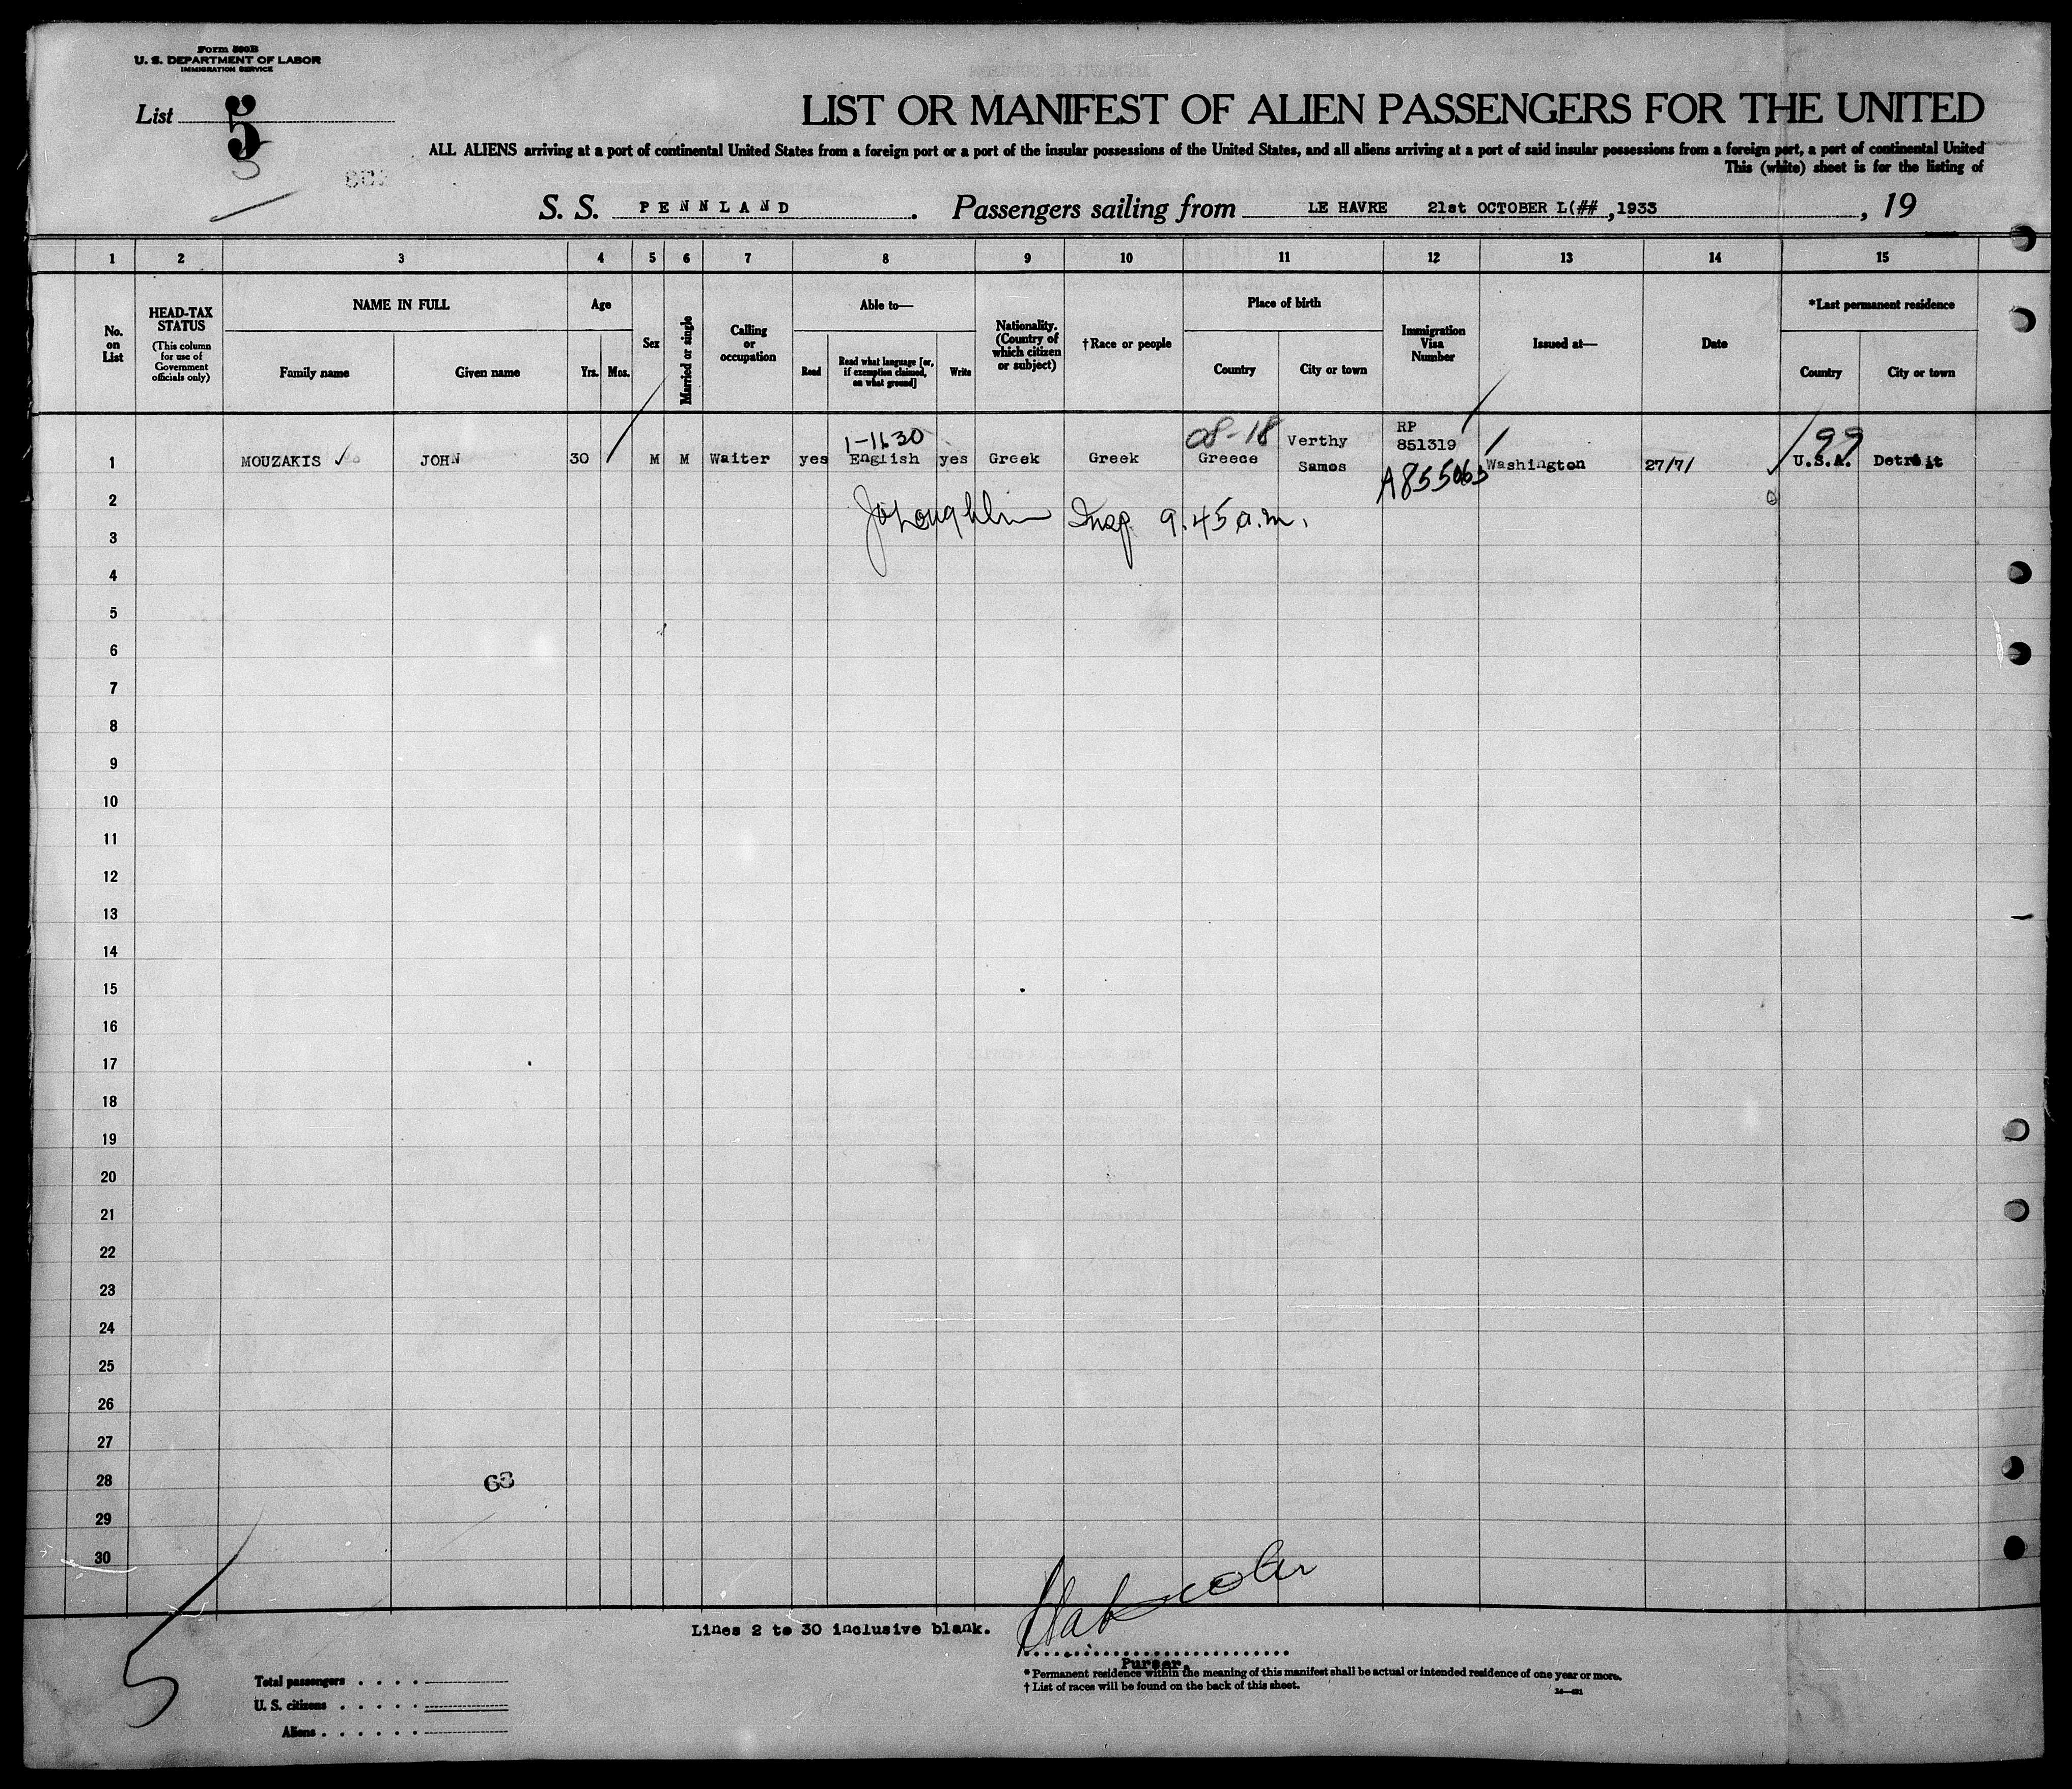 Form 500B
U. S. DEPARTMENT OF LABOR
IMMIGRATION SERVICE
List 5
5
LIST OR MANIFEST OF ALIEN PASSENGERS FOR THE UNITED
ALL ALIENS arriving at a port of continental United States from a foreign port or a port of the insular possessions of the United States, and all aliens arriving at a port of said insular possessions from a foreign port, a port of continental United
This (white) sheet is for the listing of
S. S. PENNLAND . Passengers sailing from LE HAVRE 21st OCTOBER L(## ,1933 , 19
1 2 3 4 5 6 7 8 9 10 11 12 13 14 15
No. on List
HEAD-TAX STATUS
(This column for use of Government officials only)
NAME IN FULL
Family name Given name
Age
Yrs. Mos.
Sex
Married or single
Calling or occupation
Able to—
Read
Read what language [or, if exemption claimed, on what ground]
Write
Nationality. (Country of which citizen or subject)
†Race or people
Place of birth
Country City or town
Immigration Visa Number
Issued at—
Date
*Last permanent residence
Country City or town
1-1630 08-18 Verthy RP 851319 99
1 MOUZAKIS JOHN 30 M M Waiter yes English yes Greek Greek Greece Samos A855063 Washington 27/7/ U.S.A. Detroit
2
JoLoughlin Insp. 9.45 a.m.
3
4
5
6
7
8
9
10
11
12
13
14
15
16
17
18
19
20
21
22
23
24
25
26
27
28 63
29
30
Lines 2 to 30 inclusive blank.
Purser.
* Permanent residence within the meaning of this manifest shall be actual or intended residence of one year or more.
† List of races will be found on the back of this sheet.
Total passengers
U. S. citizens
Aliens
5